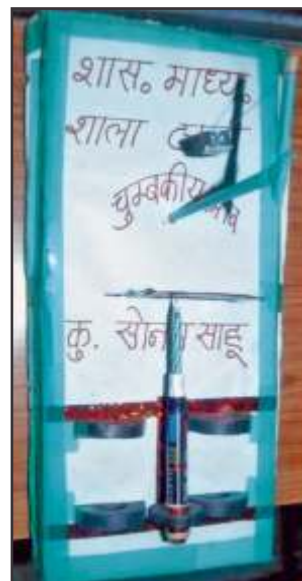 शास. माध्य.
शाला
चुम्बकीय
कु. सोनम साहू